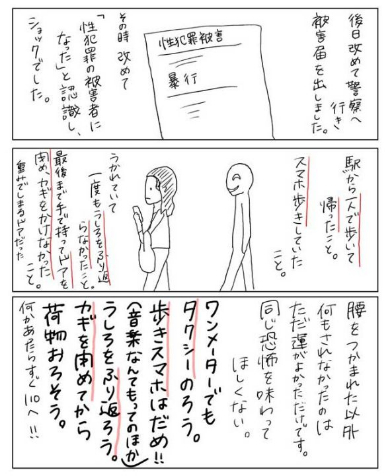 後日改めて警察へ
行き
被害届を出しました。
性犯罪被害
暴行
その時 改めて
「性犯罪の被害者に
なった」と認識し、
ショックでした。
駅から一人で歩いて
帰ったこと。
スマホ歩きしていた
こと。
うかれていて
一度もうしろをふり返
らなかったこと。
最後まで手で持ってドアを
閉め、カギをかけなかった
こと。
重みでしまるドアだった
腰をつかまれた以外
何もされなかったのは
ただ運がよかっただけです。
同じ恐怖を味わって
ほしくない。
ワンメーターでも
タクシーのろう。
歩きスマホはだめ!!
(音楽なんてもってのほか)
うしろをふり返ろう。
カギを閉めてから
荷物おろそう。
何かあったらすぐ110へ!!